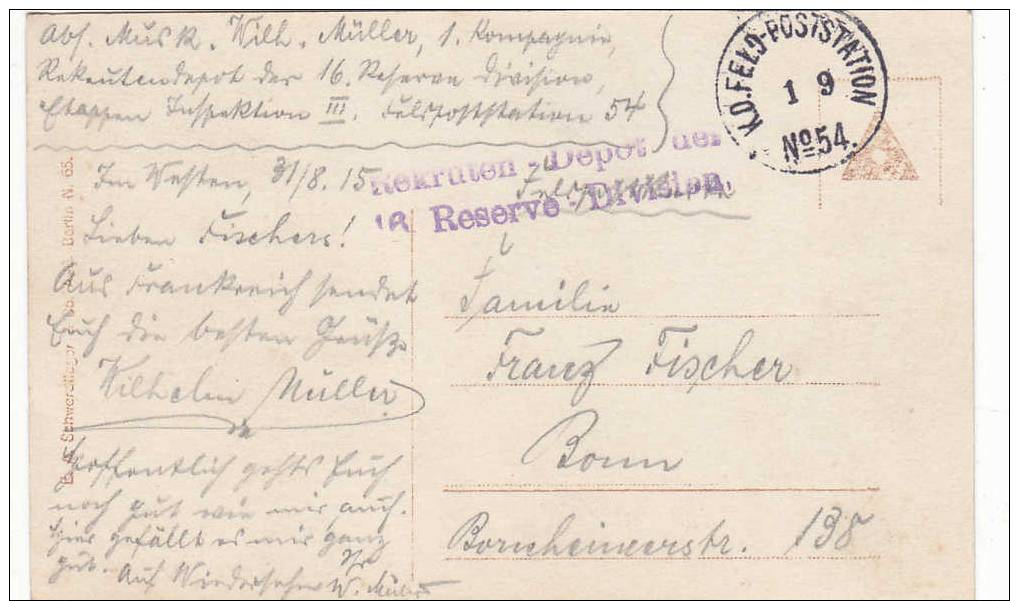 Abs. Musk. Wilh. Müller, 1. Kompagnie,
Rekrutendepot der 16. Reserve Division,
Etappen Inspektion III. Feldpoststation 54
K.D. FELD-POSTSTATION
1 9
No 54.
Rekruten-Depot der
16 Reserve-Division
Im Westen, 31/8. 15
Lieben Fischers!
Aus Frankreich sendet
Euch die besten Grüße
Wilhelm Müller
Hoffentlich gehts Euch
noch gut wie mir auch.
Hier gefällt es mir ganz
gut. Auf Wiedersehn
W. Müller
Familie
Franz Fischer
Bonn
Bornheimerstr. 138
Schwerdtfeger
Berlin N. 65.